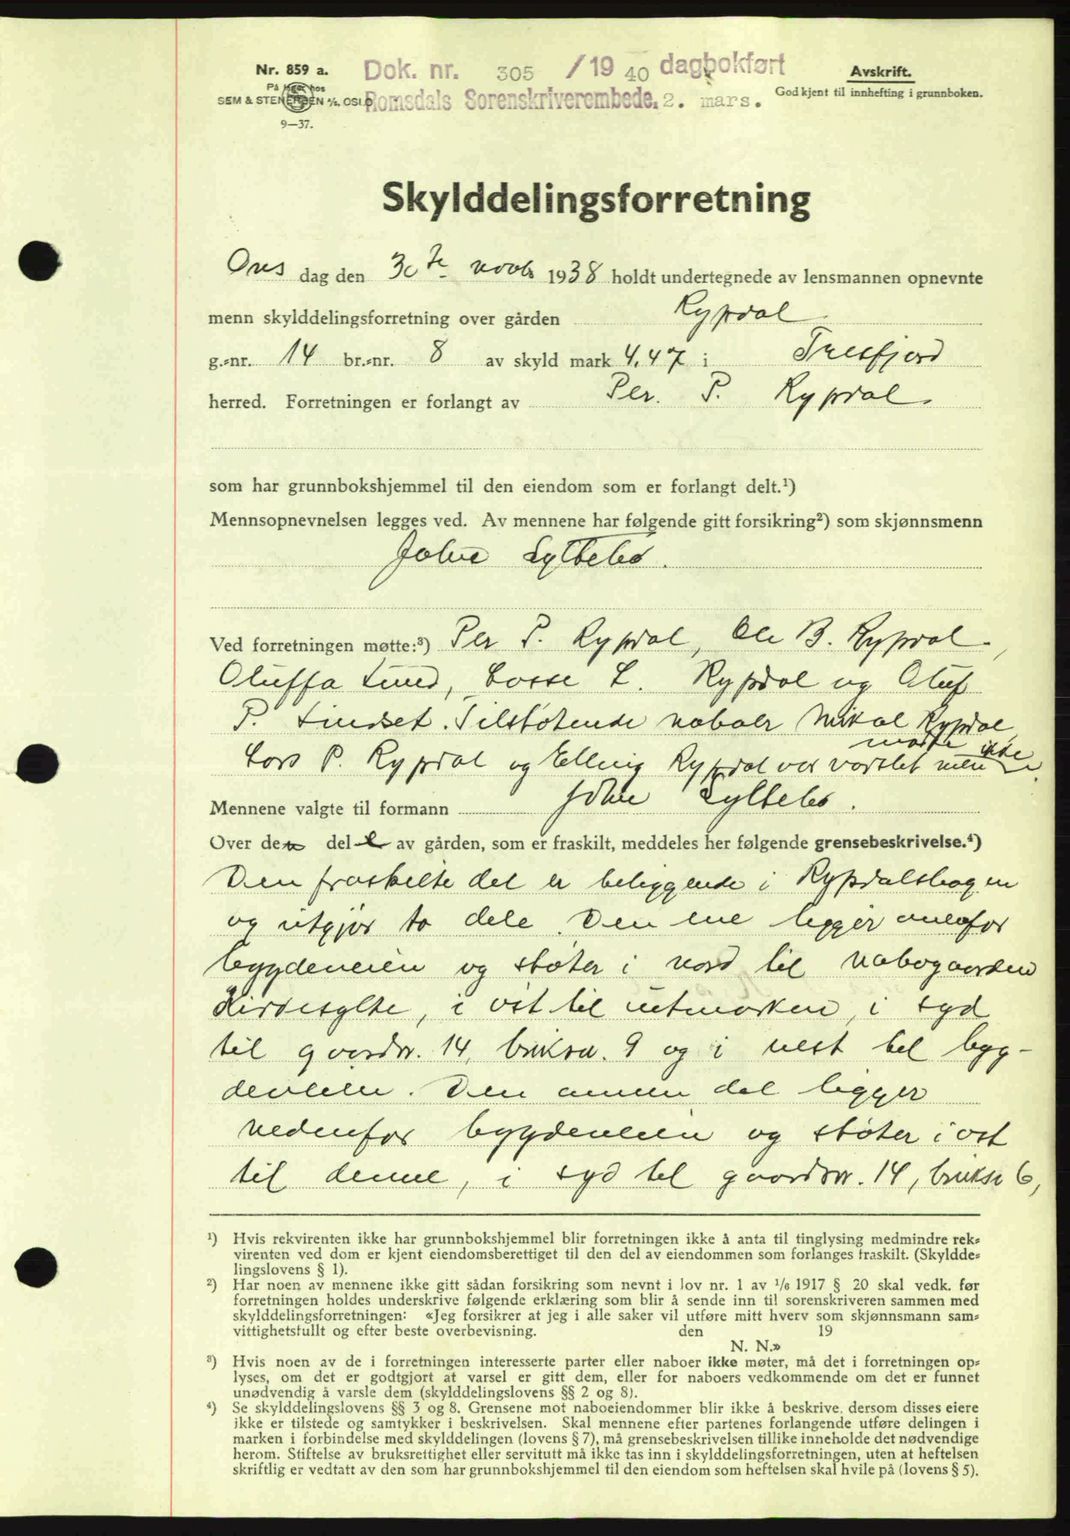 Nr. 859 a.
På lager hos
SEM & STENERSEN A/S, OSLO
9—37.
Dok. nr. 305 /19 40 dagbokført
Romsdals Sorenskriverembede. 2. mars.
Avskrift.
Godkjent til innhefting i grunnboken.
Skylddelingsforretning
Ons dag den 30te novbr 1938 holdt undertegnede av lensmannen opnevnte
menn skylddelingsforretning over gården Rypdal.
g.-nr. 14 br.-nr. 8 av skyld mark 4,47 i Tresfjord
herred. Forretningen er forlangt av Per. P. Rypdal.
som har grunnbokshjemmel til den eiendom som er forlangt delt.¹)
Mennsopnevnelsen legges ved. Av mennene har følgende gitt forsikring²) som skjønnsmenn
Johs Syltebø.
Ved forretningen møtte:³) Per P. Rypdal, Ole B. Rypdal,
Oluffa Lund, Lasse L. Rypdal og Oluf
P. Lindset. Tilstøtende naboer Mikal Rypdal,
Lars P. Rypdal og Elling Rypdal var varslet men møtte ikke.
Mennene valgte til formann John Syltebø.
Over den del av gården, som er fraskilt, meddeles her følgende grensebeskrivelse.⁴)
Den fraskilte del er beliggende i Rypdalshagen
og utgjør to dele. Den ene ligger ovenfor
bygdeveien og støter i nord til nabogaarden
Kirkesylte, i øst til utmarken, i syd
til gaardsnr. 14, bruksnr. 9 og i vest til byg-
deveien. Den annen del ligger
nedenfor bygdeveien og støter i øst
til denne, i syd til gaardsnr. 14, bruksnr 6,
¹) Hvis rekvirenten ikke har grunnbokshjemmel blir forretningen ikke å anta til tinglysing medmindre rek-
virenten ved dom er kjent eiendomsberettiget til den del av eiendommen som forlanges fraskilt. (Skyldde-
lingslovens § 1).
²) Har noen av mennene ikke gitt sådan forsikring som nevnt i lov nr. 1 av ¹/₆ 1917 § 20 skal vedk. før
forretningen holdes underskrive følgende erklæring som blir å sende inn til sorenskriveren sammen med
skylddelingsforretningen: «Jeg forsikrer at jeg i alle saker vil utføre mitt hverv som skjønnsmann sam-
vittighetsfullt og efter beste overbevisning. den 19
N. N.»
³) Hvis noen av de i forretningen interesserte parter eller naboer ikke møter, må det i forretningen op-
lyses, om det er godtgjort at varsel er gitt dem, eller for naboers vedkommende om det er funnet
unødvendig å varsle dem (skylddelingslovens §§ 2 og 8).
⁴) Se skylddelingslovens §§ 3 og 8. Grensene mot naboeiendommer blir ikke å beskrive, dersom disses eiere
ikke er tilstede og samtykker i beskrivelsen. Skal mennene efter partenes forlangende utføre delingen i
marken i forbindelse med skylddelingen (lovens § 7), må grensebeskrivelsen tillike inneholde det nødvendige
herom. Stiftelse av bruksrettighet eller servitutt må ikke tas inn i skylddelingsforretningen, uten at heftelsen
skriftlig er vedtatt av den som har grunnbokshjemmel til den eiendom som heftelsen skal hvile på (lovens § 5).